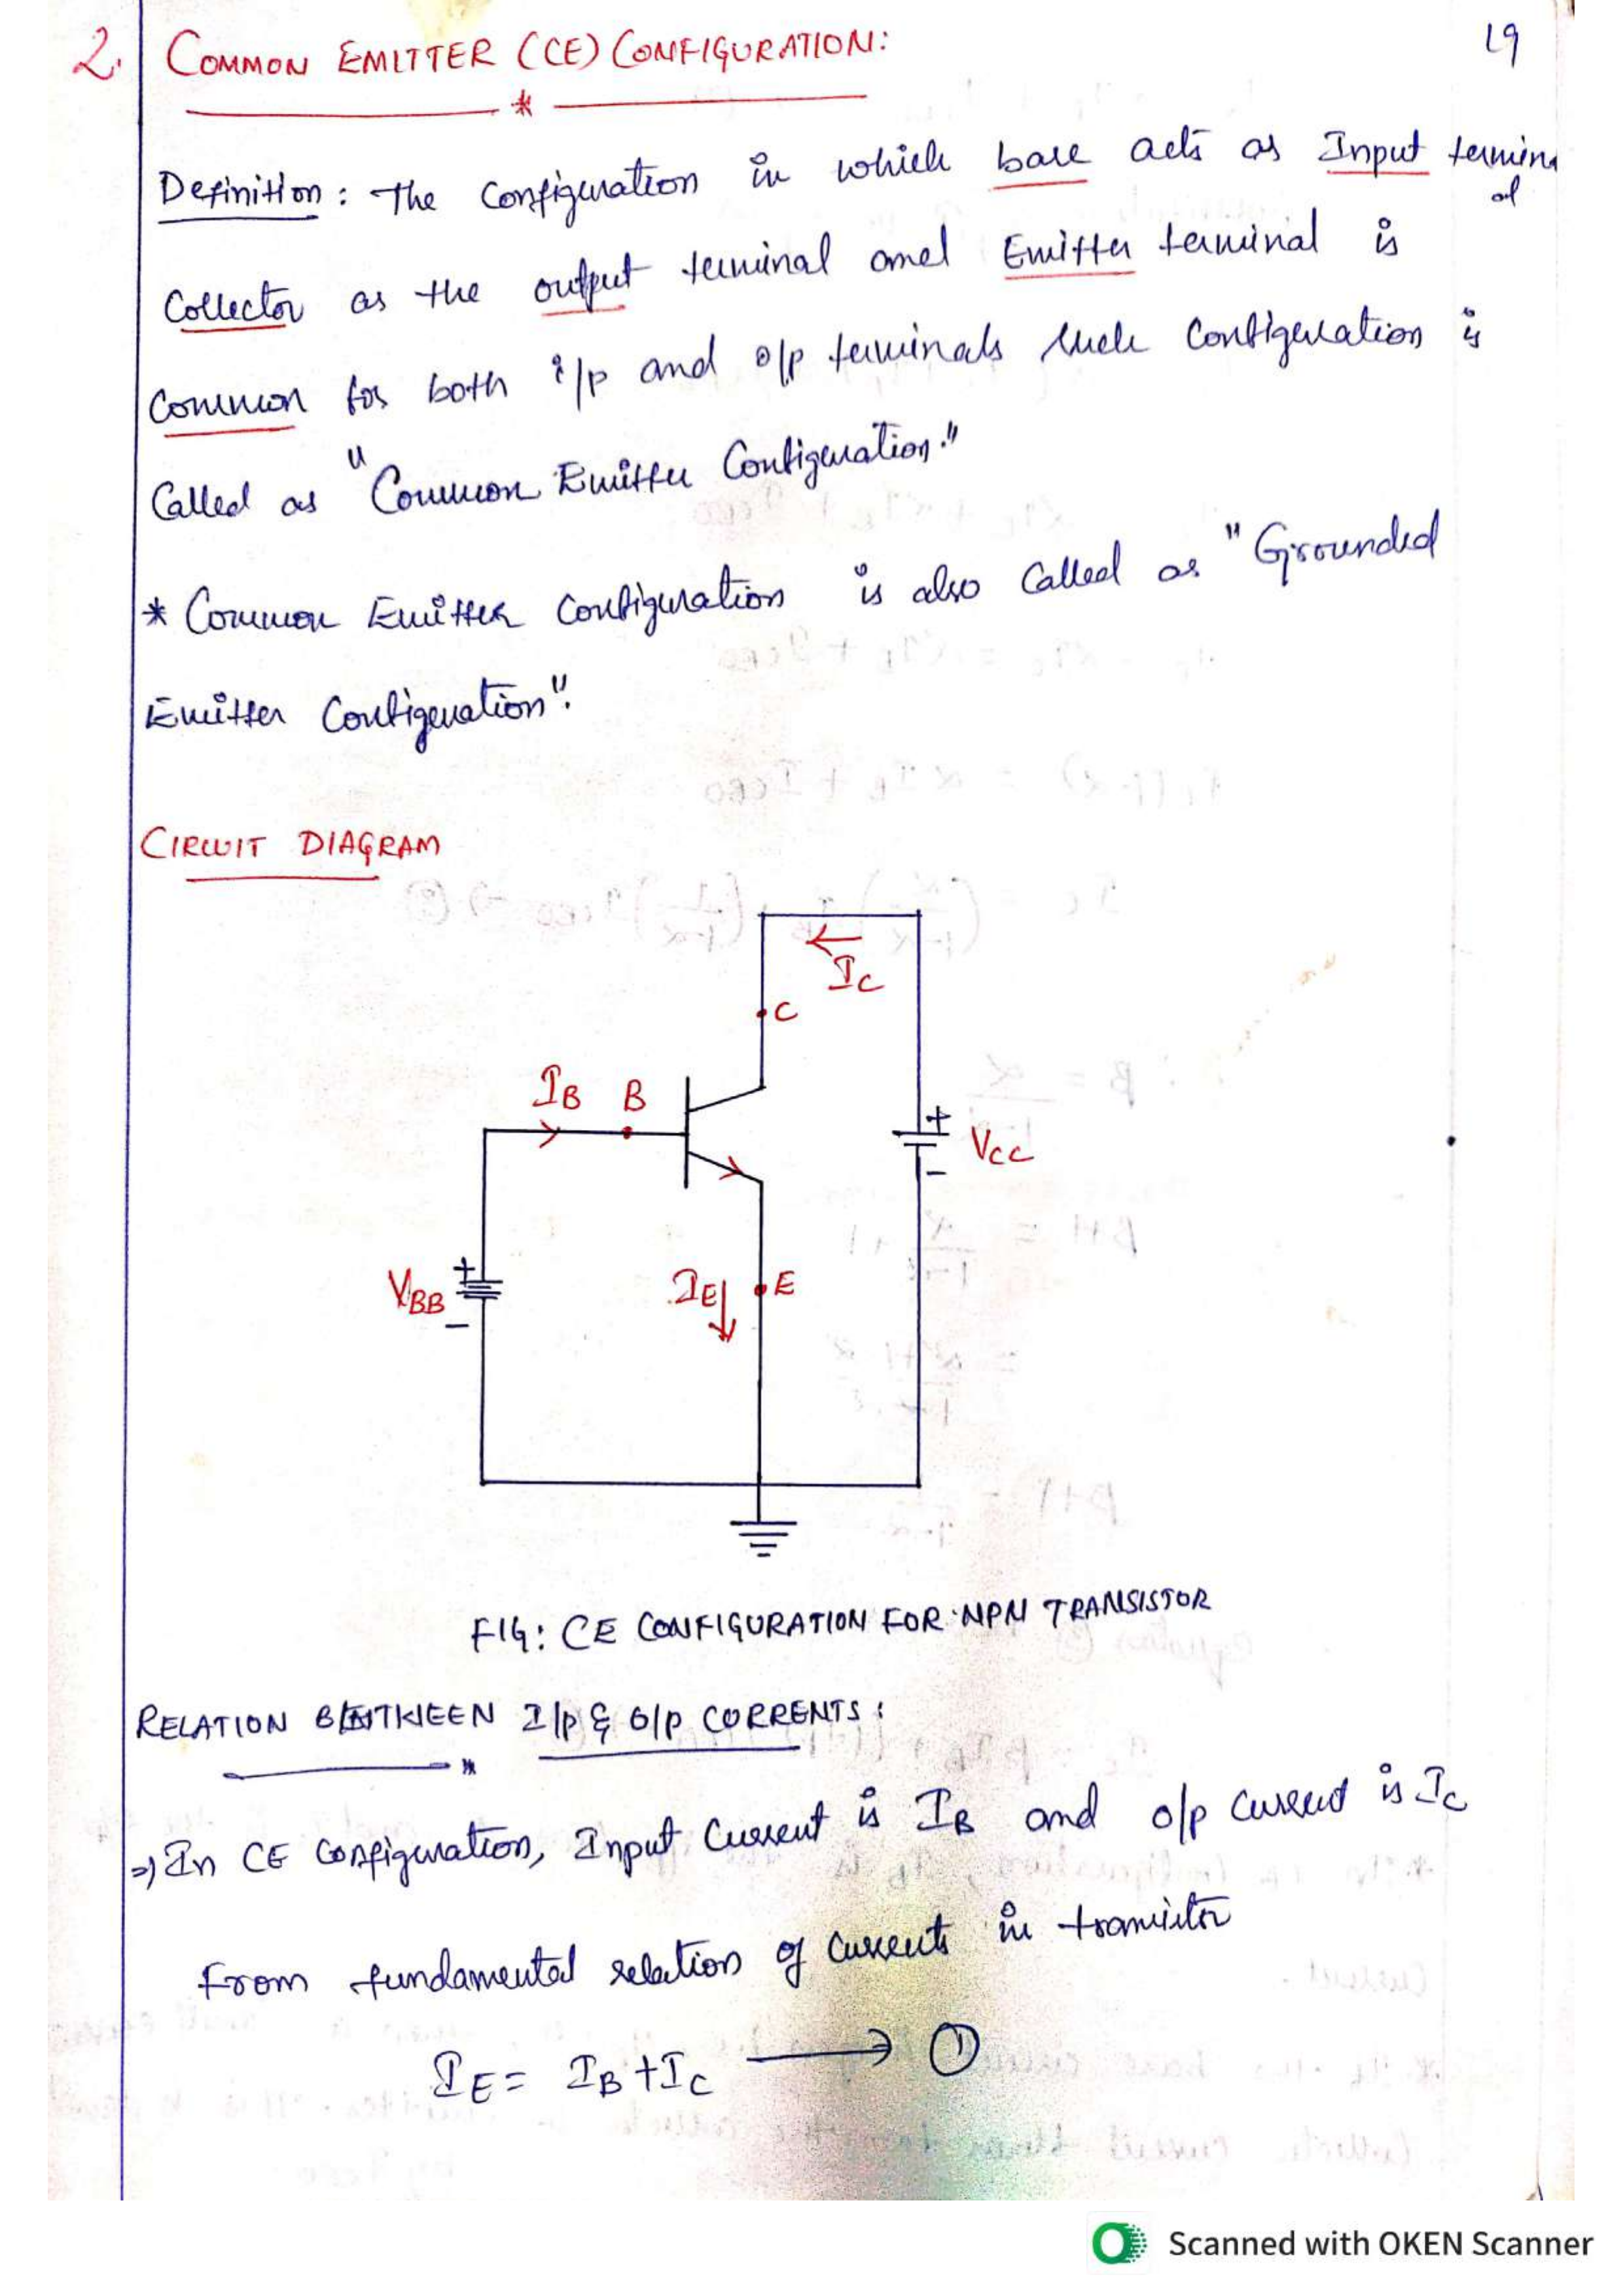 19
2. COMMON EMITTER (CE) CONFIGURATION:
Definition: The Configuration in which base acts as Input terminal
Collector as the output terminal and Emitter terminal is
Common for both i/p and o/p terminals such Configuration is
Called as "Common Emitter Configuration."
* Common Emitter Configuration is also Called as "Grounded
Emitter Configuration".
CIRCUIT DIAGRAM
IC
C
IB B
+
VCC
-
VBB
+
-
IE
E
FIG: CE CONFIGURATION FOR NPN TRANSISTOR
RELATION BETWEEN I/P & O/P CORRENTS:
=> In CE Configuration, Input Current is IB and o/p Current is IC
From fundamental relation of Currents in transistor
IE = IB + IC → ①
Scanned with OKEN Scanner